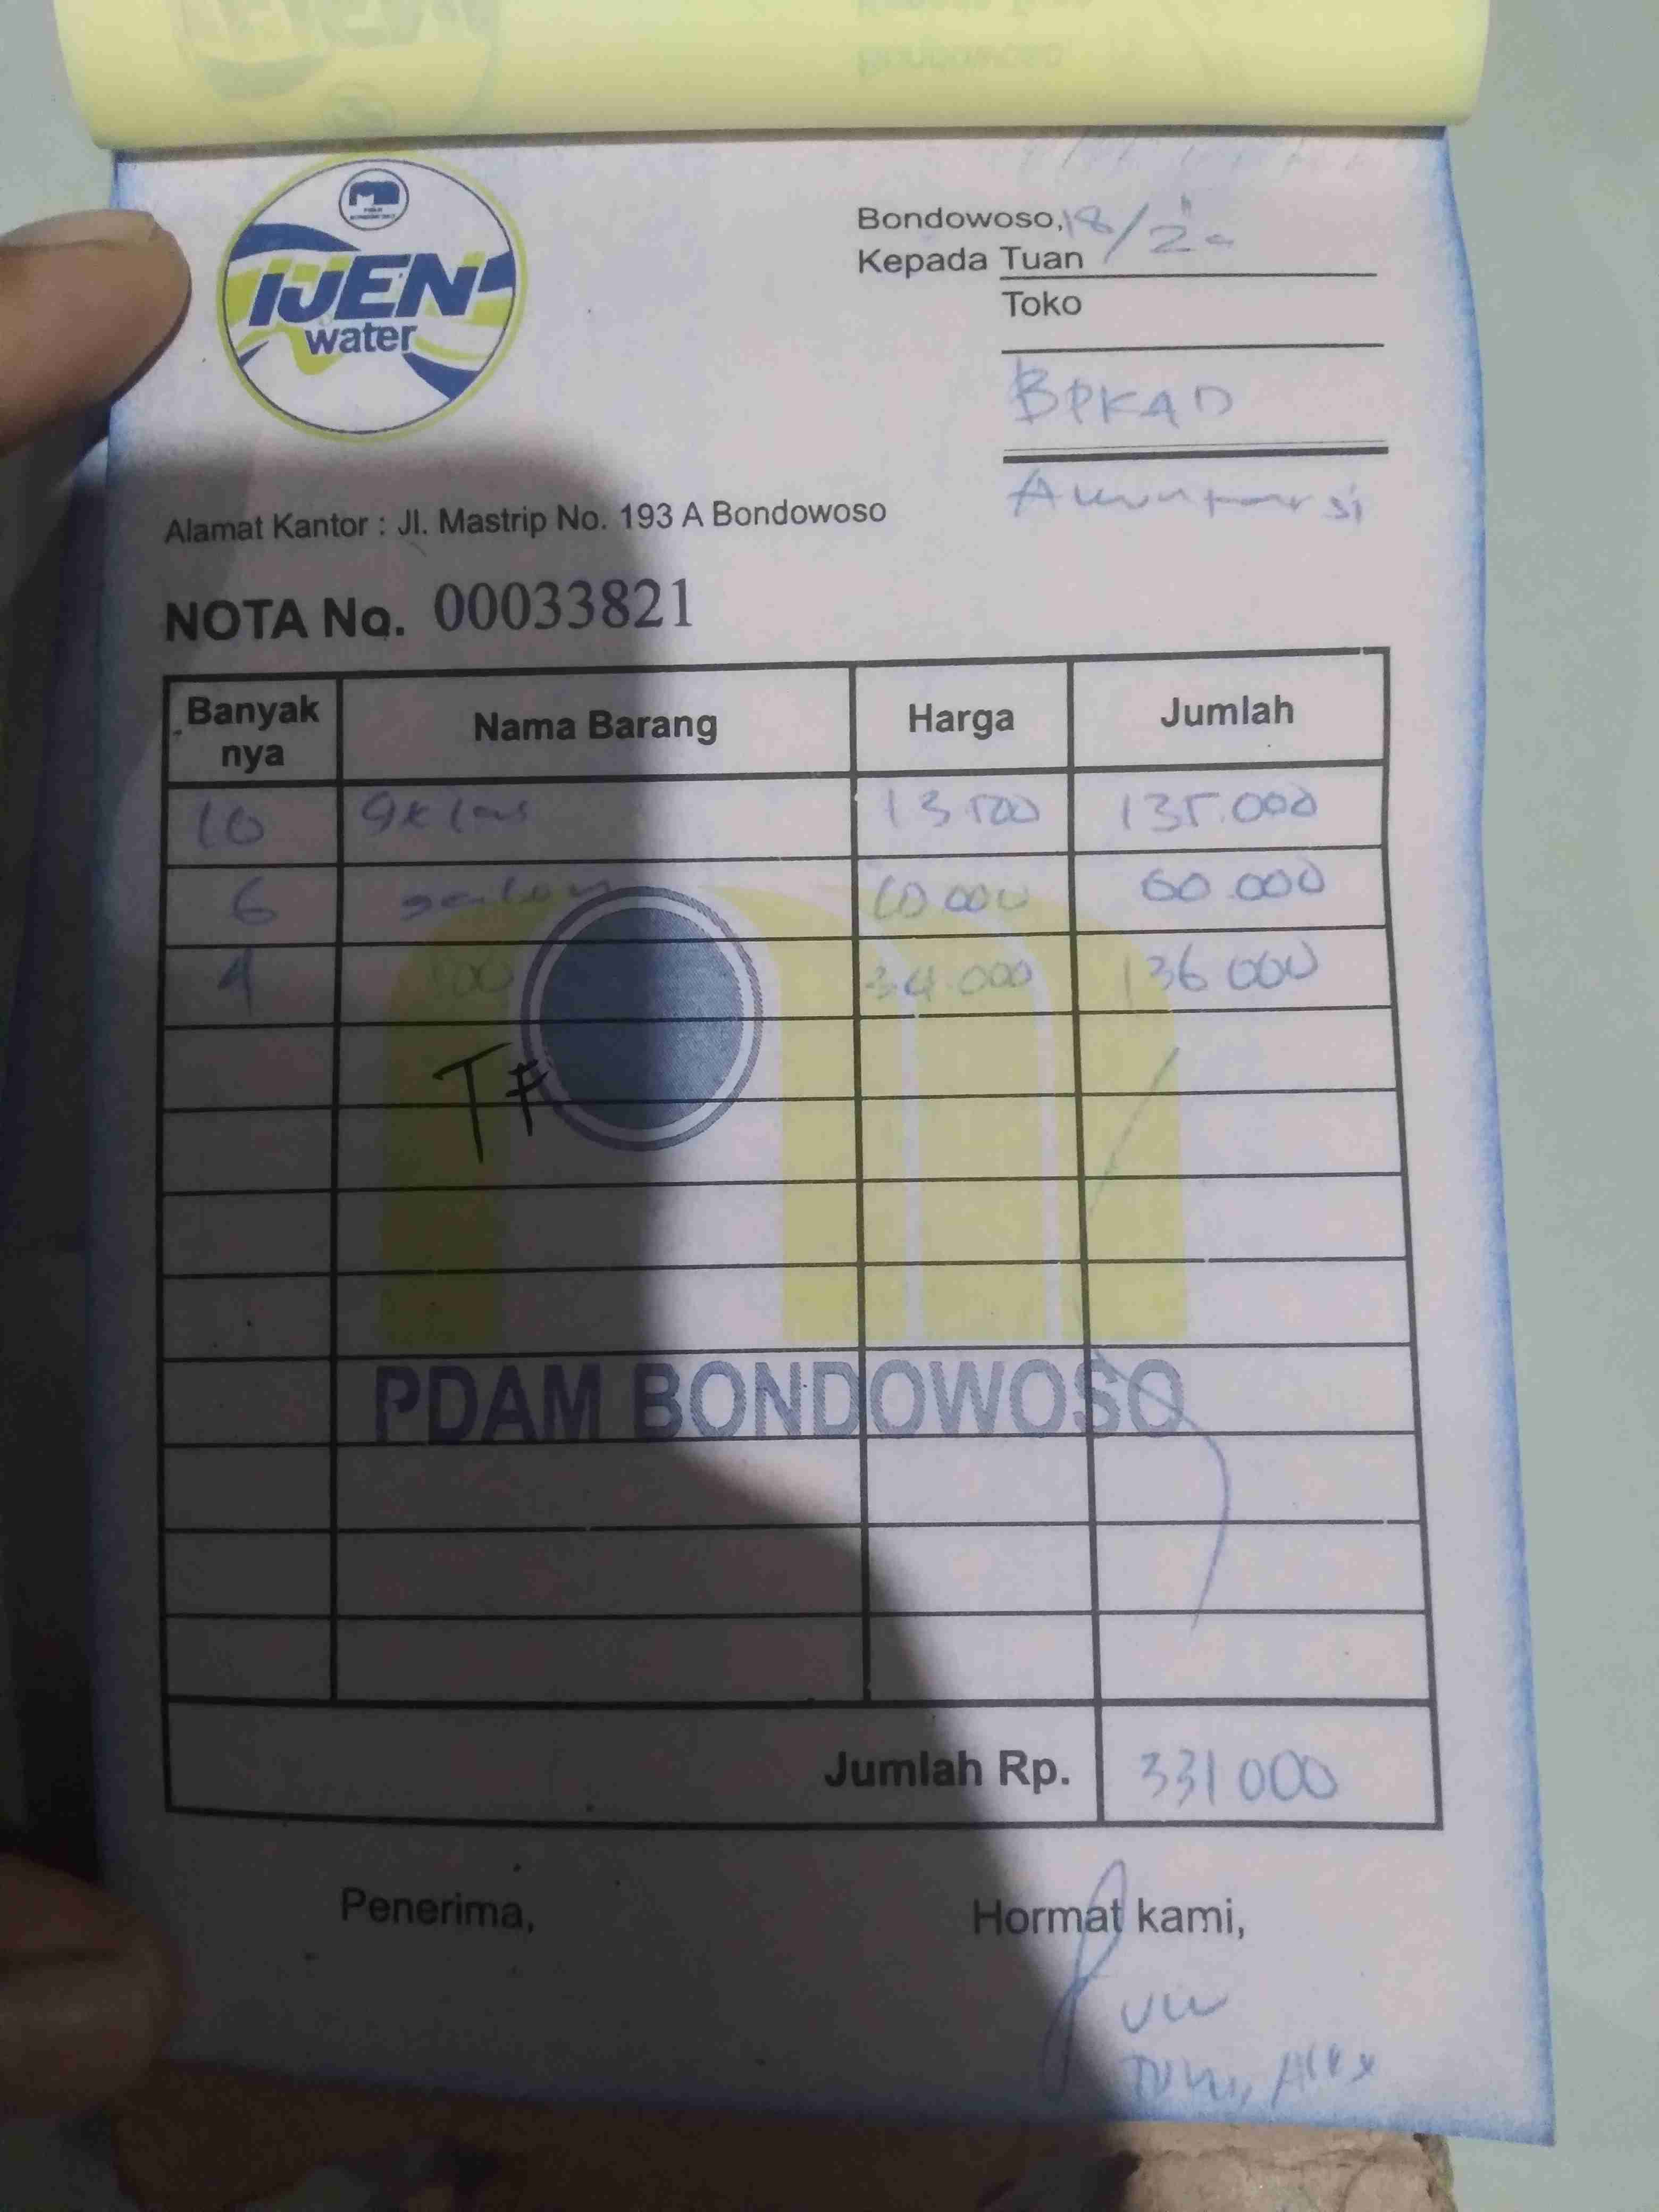 IJEN
water
Bondowoso, 18/2
Kepada Tuan
Toko
BPKAD
Alamat Kantor : Jl. Mastrip No. 193 A Bondowoso
NOTA No. 00033821
Banyak nya Nama Barang Harga Jumlah
10 gelas 13.500 135.000
6 galon 10.000 60.000
4 34.000 136.000
TF
PDAM BONDOWOSO
Jumlah Rp. 331 000
Penerima, Hormat kami,